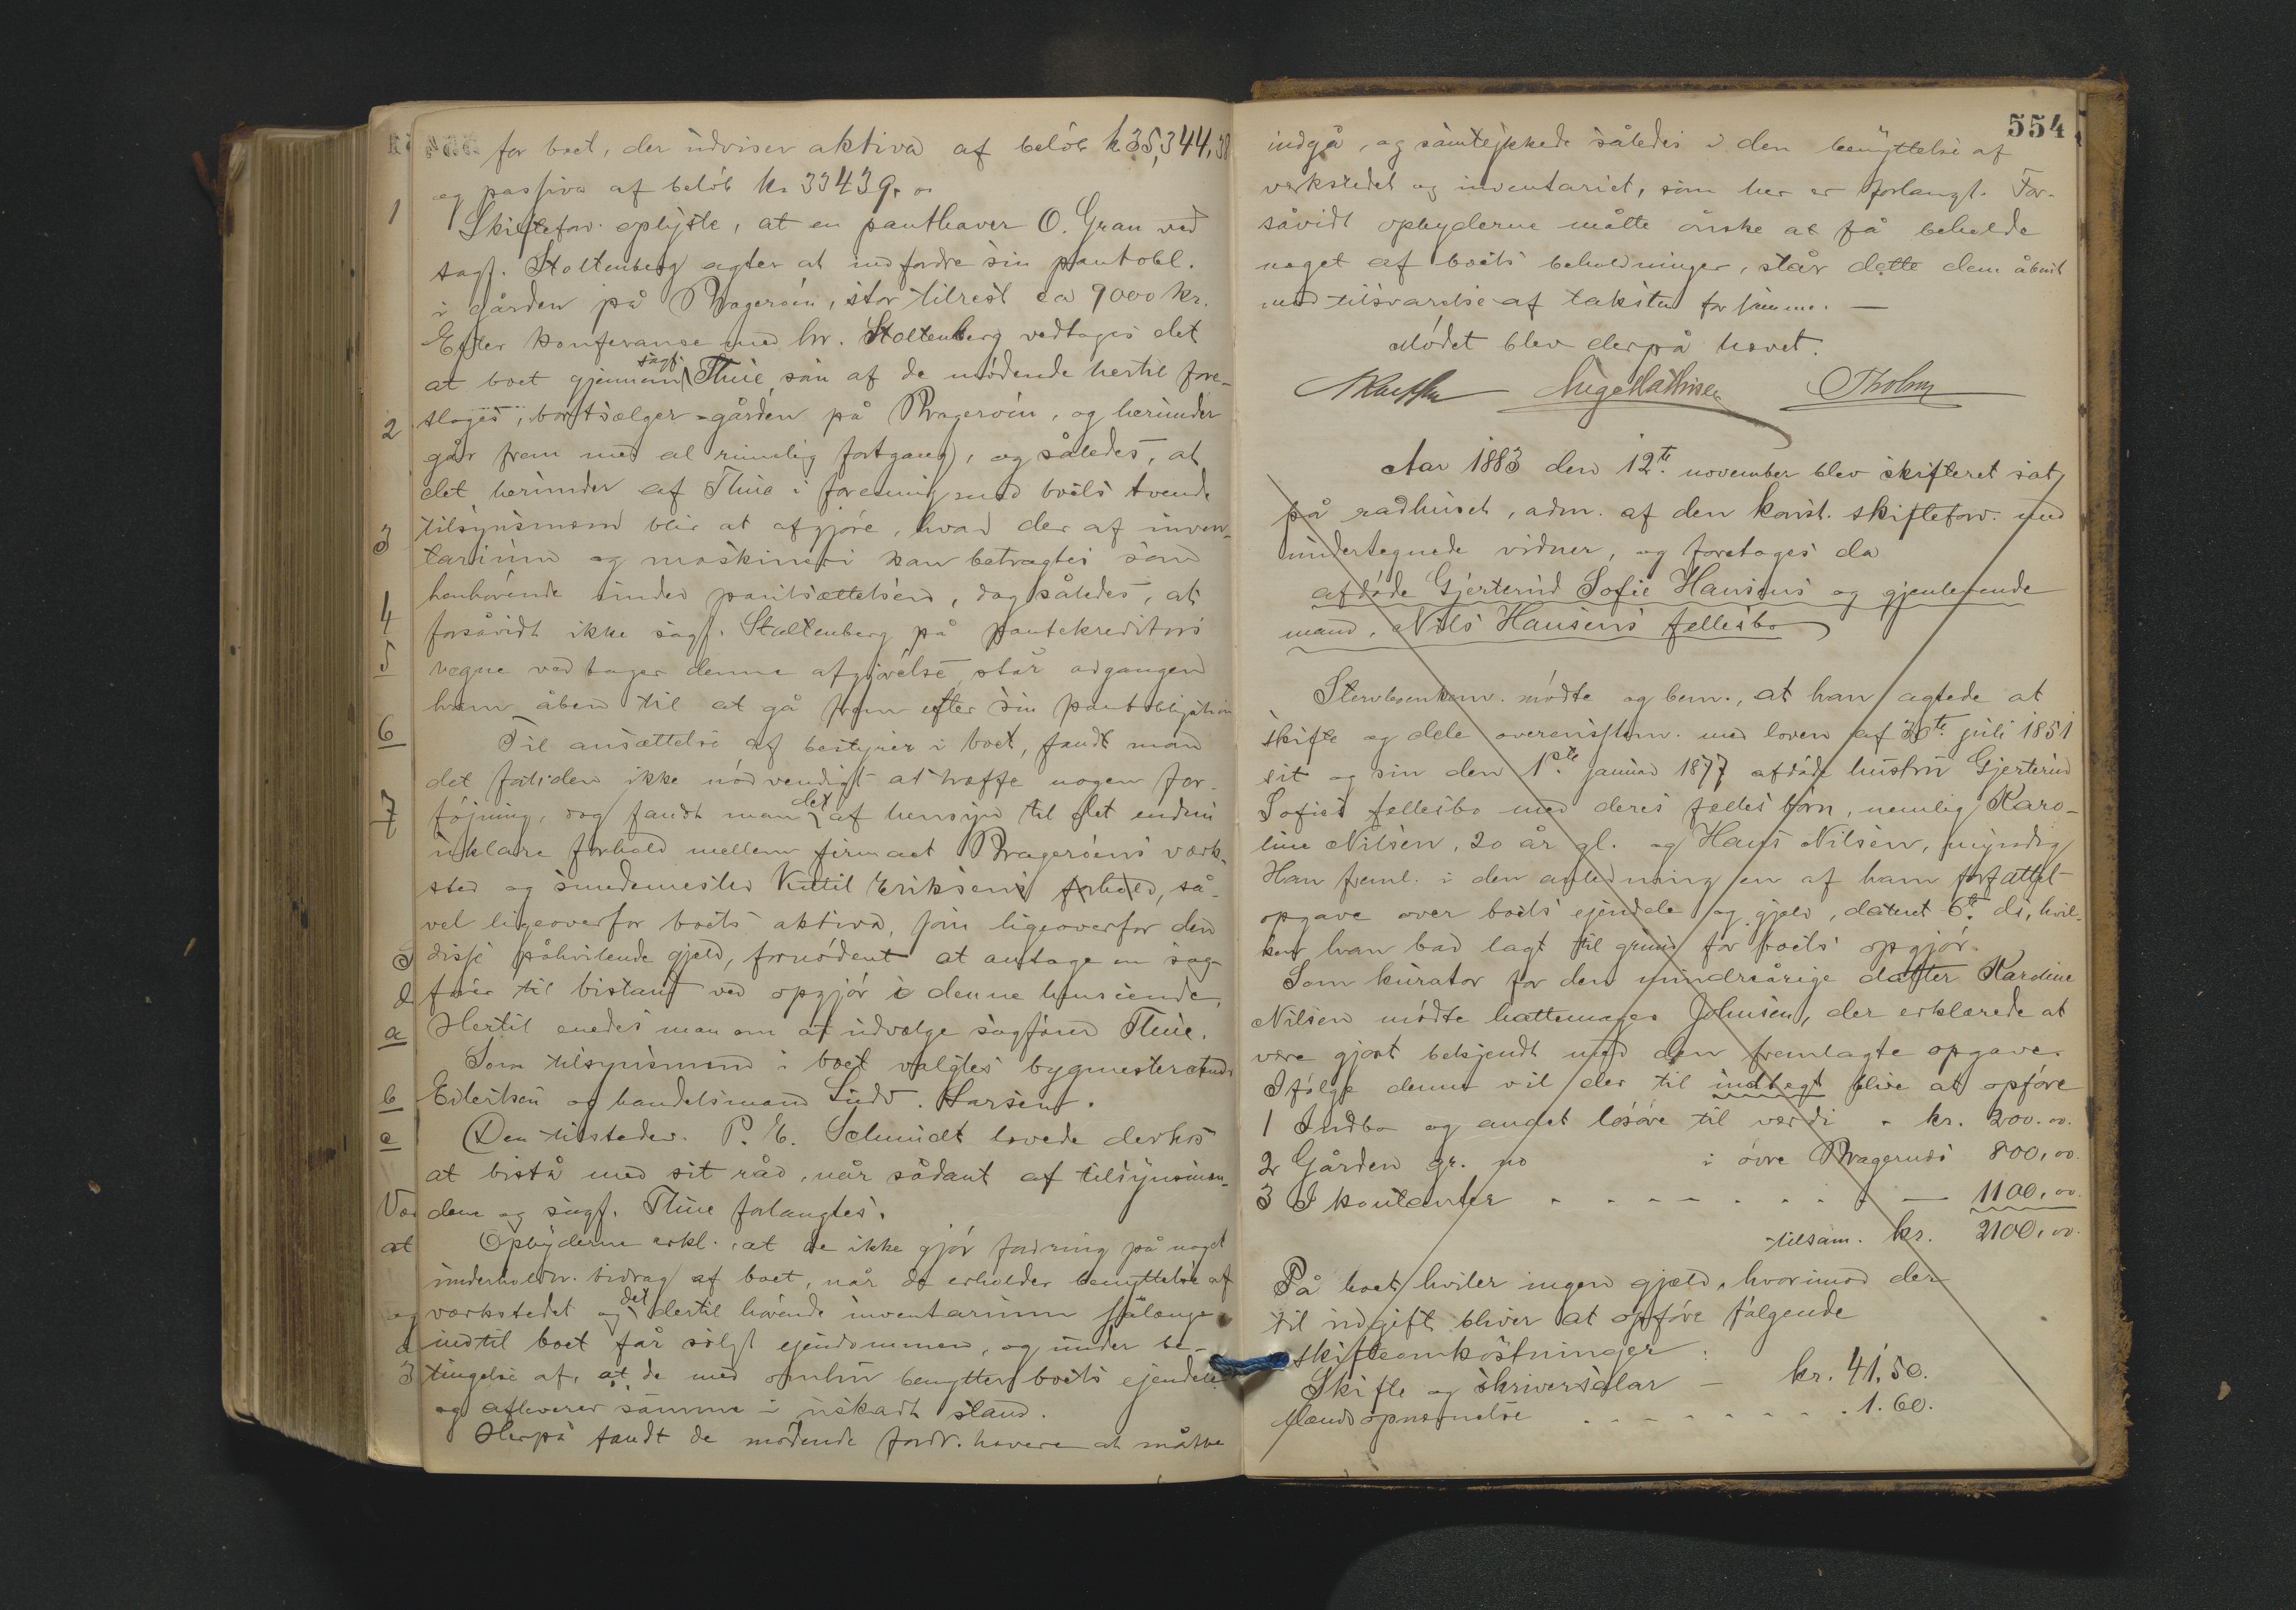 for boet, der udviser aktiva af beløb kr 35,344,38
og passiva af beløb kr 33439.00
Skifteforv. oplyste, at en panthaver O. Gran ved
sagf. Stoltenberg agter at indfordre sin pantobl.
i gården på Bragerøen, stor tilrest ca 9000 kr.
Efter konferanse med hr. Stoltenberg vedtages det
at boet gjennem sagf. Thue, som af de mødende hertil fore-
slages, bortsælger gården på Bragerøen, og herunder
går frem med al rimelig fortgang, og således, at
det herunder af Thue i forening med boets tvende
tilsynsmænd blir at afgjøre, hvad der af inven-
tarium og maskineri kan betragtes som
henhørende under pantsættelsen, dog således, at
forsåvidt ikke sagf. Stoltenberg på pantekreditors
vegne vedtager denne afgjørelse, står adgangen
ham åben til at gå frem efter sin pantobligation
Til ansættelse af bestyrer i boet, fandt man
det fortiden ikke nødvendigt at træffe nogen for-
føjning, dog fandt man det af hensyn til det endnu
uklare forhold mellem firmaet Bragerøens værk-
sted og smedemester Kittil Eriksens forhold, så-
vel ligeoverfor boets aktiva, som ligeoverfor den
disse påhvilende gjæld, fornødent at antage en sag-
fører til bistand ved opgjør i denne henseende,
Hertil enedes man om at udvælge sagfører Thue.
Som tilsynsmænd i boet valgtes bygmester
Eilertsen og handelsmand Ludv. Larsen.
Den tilstedev. P. E. Schmidt lovede derhos
at bistå med sit råd, når sådant af tilsynsmæn-
dene og sagf. Thue forlangtes.
Opbyderne erkl., at de ikke gjør fordring på noget
underholdn. bidrag af boet, når de erholder benyttelse af
værkstedet og det dertil hørende inventarium sålænge
indtil boet får solgt ejendommen, og under be-
tingelse af, at de med omhu benytter boets ejendele
og afleverer samme i uskadt stand.
Herpå fandt de mødende fordr. havere at måtte
1
2
3
4
5
6
7
a
b
c
at
og
554
indgå, og samtykkede således i den benyttelse af
værkstedet og inventariet, som her er forlangt. For-
såvidt opbyderne måtte ønske at få beholde
noget af boets beholdninger, står dette dem åbent
mod tilsvarelse af taksten for samme. —
Mødet blev derpå hævet.
Aar 1883 den 12te november blev skifteret sat
på rådhuset, adm. af den konst. skifteforv. med
undertegnede vidner, og foretoges da
afdøde Gjertrud Sofie Hansens og gjenlevende
mand, Nils Hansens fellesbo
Stervboenkem. mødte og bem., at han agtede at
skifte og dele overensstem. med loven af 30te juli 1851
sit og sin den 1ste januar 1877 afdøde hustru Gjertrud
Sofies fellesbo med deres felles børn, nemlig Karo-
line Nilsen, 20 år gl. og Hans Nilsen, myndig
Han freml. i den anledning en af ham forfattet
opgave over boets ejendele og gjæld, dateret 6te ds, hvil-
ken han bad lagt til grund for boets opgjør.
Som kurator for den mindreårige datter Karoline
Nilsen mødte hattemager Johnsen, der erklærede at
være gjort bekjendt med den fremlagte opgave.
Ifølge denne vil der til indtægt blive at opføre
1 Indbo og andet løsøre til værdi - kr. 200.00.
2 Gården gr. no i øvre Bragernes 800,00.
3 I kontanter - - - - - - — 1100,00.
tilsam. kr. 2100,00.
På boet hviler ingen gjæld, hvorimod der
til udgift bliver at opføre følgende
skifteomkostninger:
Skifte og skriversalær — kr. 41,50.
Mænds opnævnelse - - - - - - 1.60.